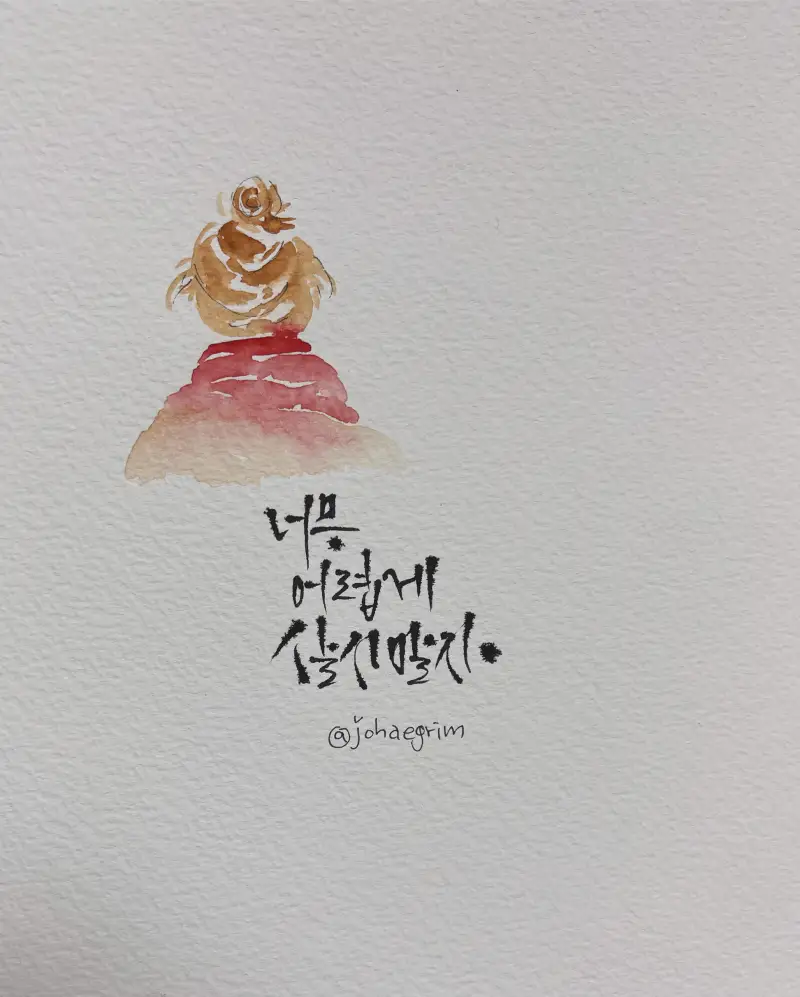 너무
어렵게
살지말지.
@johaegrim